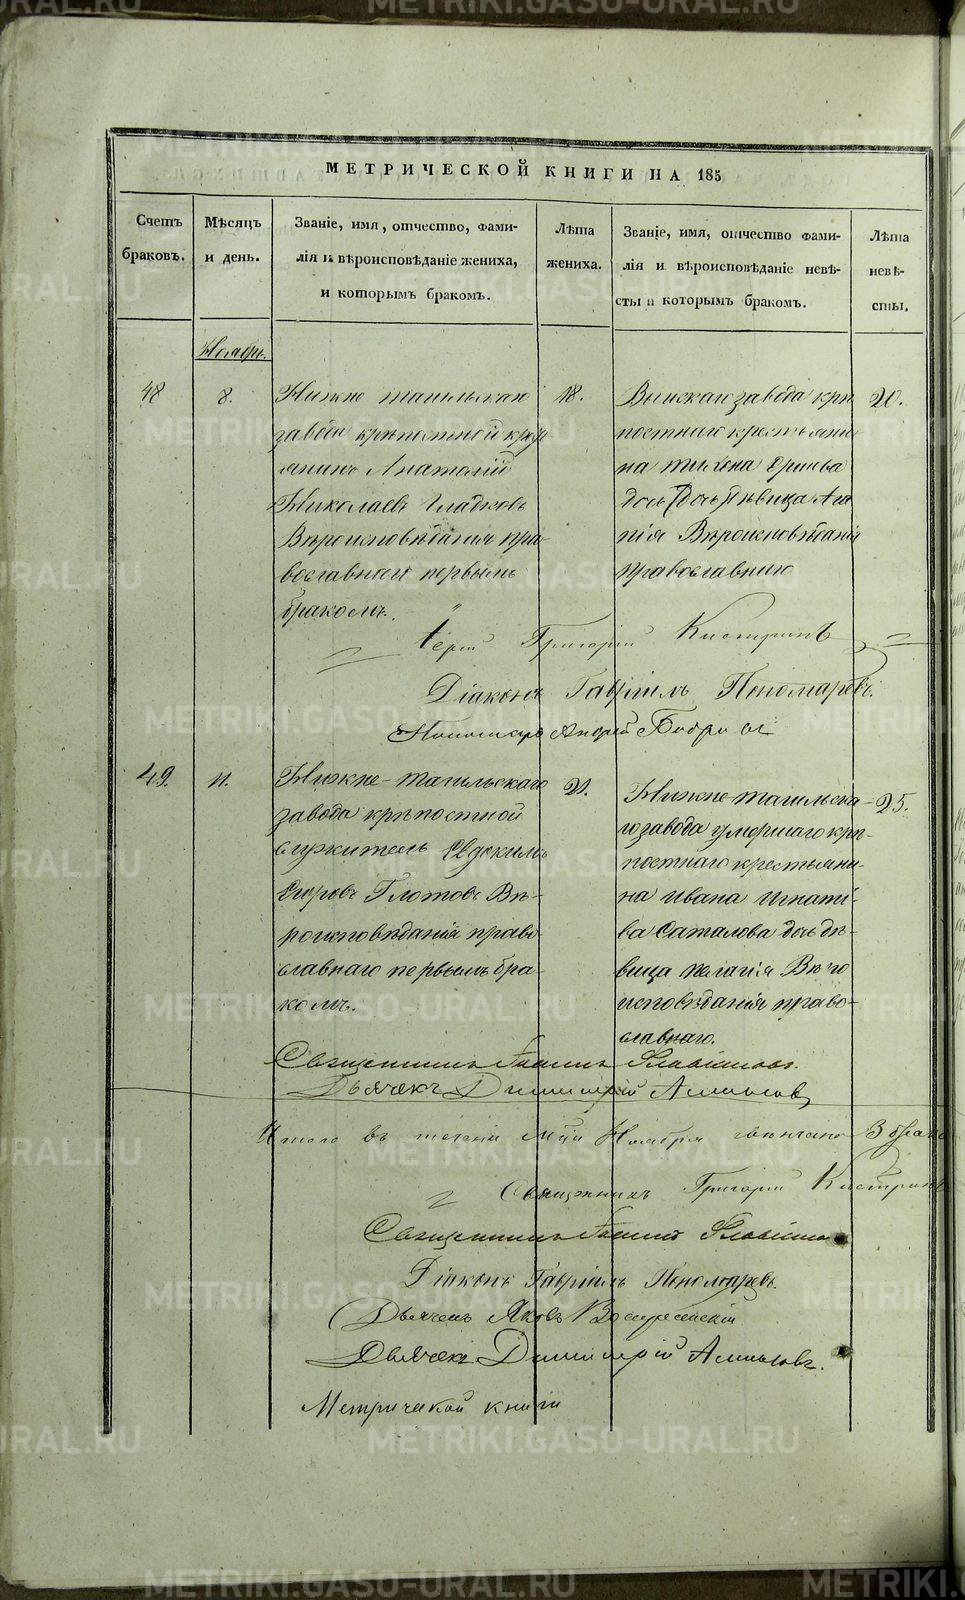 МЕТРИЧЕСКОЙ КНИГИ НА 185
Счетъ браковъ.
Мѣсяцъ и день.
Званіе, имя, отчество, фами-
лія и вѣроисповѣданіе жениха,
и которымъ бракомъ.
Лѣта
жениха.
Званіе, имя, отчество фами-
лія и вѣроисповѣданіе невѣ-
сты и которымъ бракомъ.
Лѣта
невѣ-
сты.
Ноябрь.
48
8.
Нижне тагильскаго
завода крѣпостной крес
янинъ Анатолій
Николаевъ Гладковъ
Вѣроисповѣданія пра-
вославной первымъ
бракомъ.
18.
Выйскаго завода крѣ
постнаго крестьяни
на
дочь дѣвица
Вѣроисповѣданія
православнаго
20.
Іерей Григорій
Діаконъ Гавріилъ Пономаревъ.
Пономарь Андрей
49.
11.
Нижне-тагильскаго
завода крѣпостной
служитель Евдокимъ
Егоровъ Глотовъ Вѣ-
роисповѣданія право-
славнаго первымъ бра-
комъ.
21.
Нижне-тагильска-
го завода умершаго крѣ-
постнаго крестьяни-
на Ивана Игнатi-
ва Саталова дочь дѣ-
вица Пелагія Вѣро
исповѣданія право-
славнаго.
25.
Священникъ Іоаннъ
Дьячекъ Димитрій
Итого въ теченіи Ноября 3 брака
Священникъ Григорій
Священникъ Іоаннъ
Діаконъ Гавріилъ Пономаревъ.
Дьячекъ Яковъ Воскресенскій
Дьячекъ Димитрій
Метрической книги
METRIKI.GASO-URAL.RU